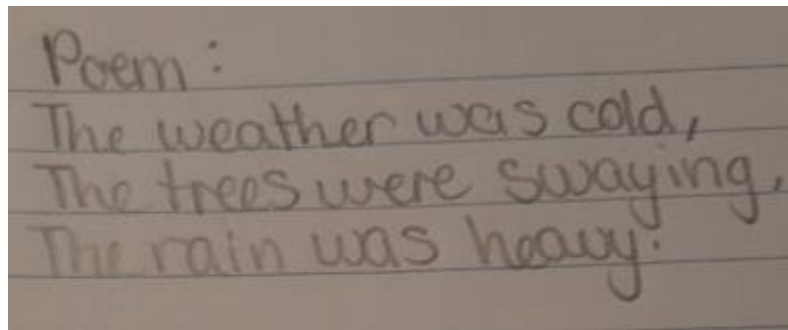 Poem:
The weather was cold,
The trees were swaying,
The rain was heavy.